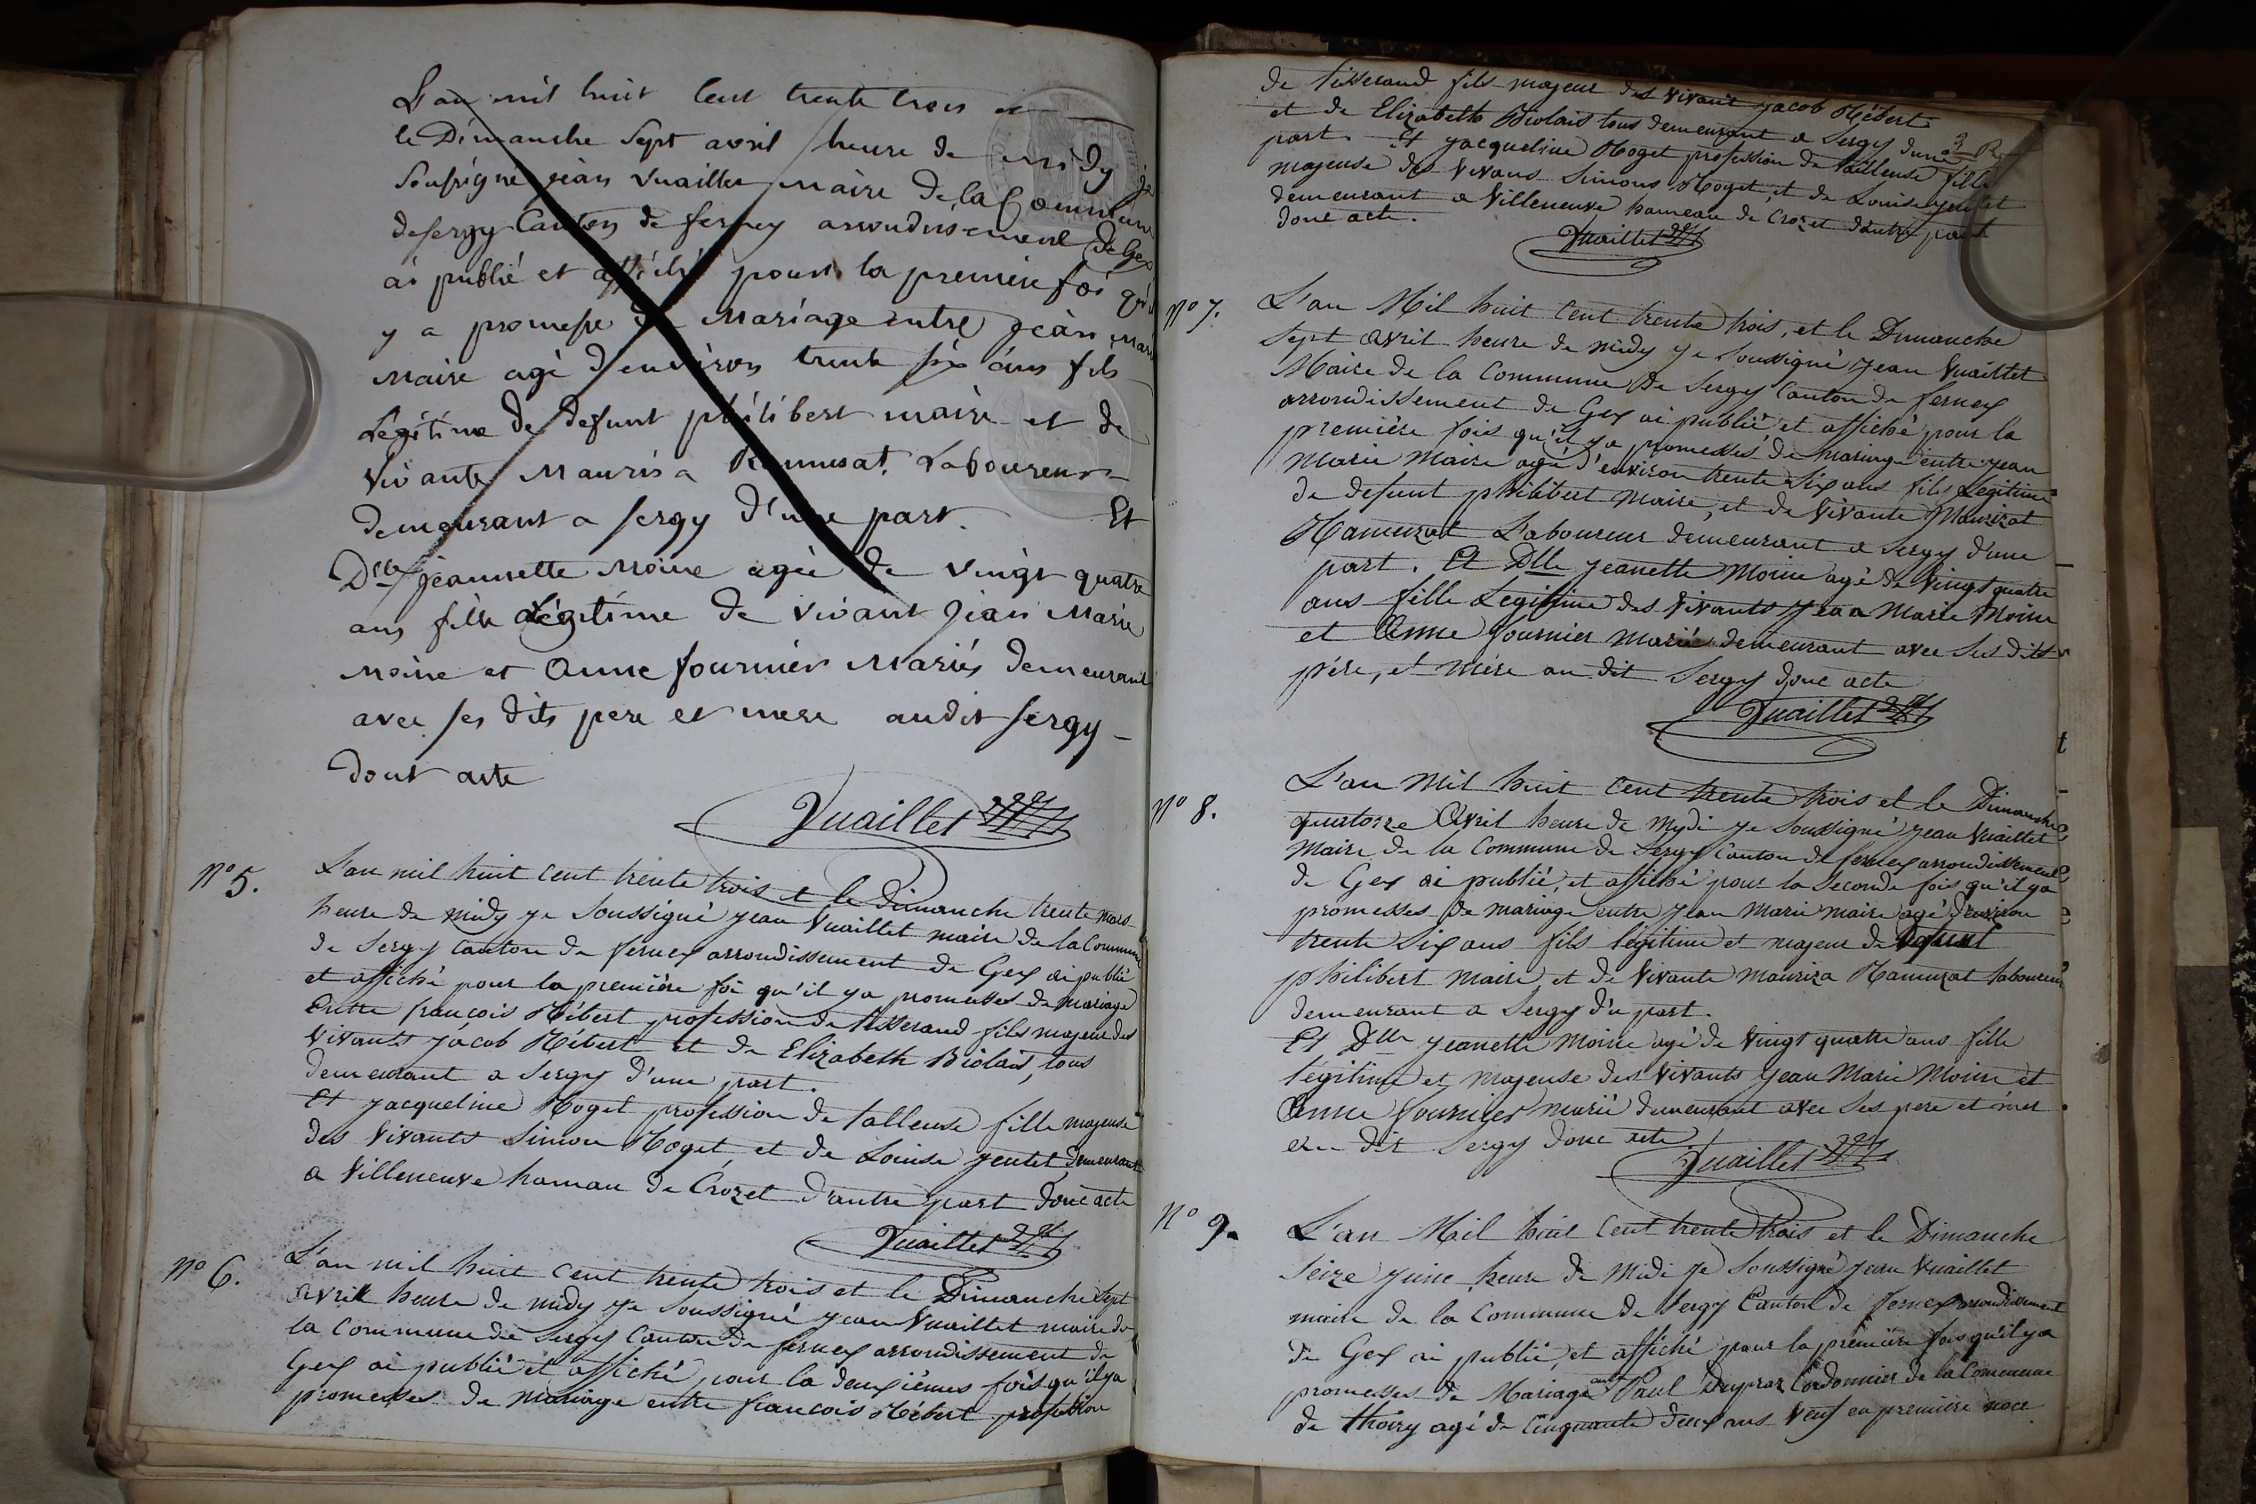 L'an mil huit cent trente trois et
le Dimanche sept avril heure de midy je
soussigné jéan vuaillet maire de la Commune
de sergy Canton de ferney arrondissement de Gex
ai publié et affiché pour la première foi qu'il
y a promesse de Mariage entre jéan marie
Maire agé d'environ trente six ans fils
Légitime de défunt philibert maire et de
vivante Mauris a Ramusat Laboureur
demeurant a sergy d'une part. Et
Dlle jeannette Moine agée de vingt quatre
ans fille Légitime de vivant jean Marie
Moine et Anne fournier Mariés demeurant
avec ses dits pere et mere audit sergy
dont acte
Vuaillet
N° 5. L'an mil huit cent trente trois et le Dimanche trente mars
heure de midy je soussigné jean Vuaillet maire de la Commune
de Sergy canton de ferney arrondissement de Gex ai publié
et affiché pour la première foi qu'il y a promesses de mariage
Entre françois Hébert profession de tisserand fils majeur des
vivants jácob Hébert et de Elizabeth Biolais, tous
demeurant a Sergy d'une part.
Et jacqueline Hoget profession de talleuse fille majeuse
des vivants Simon Hoget, et de Louise jentet demeurant
a Villeneuve hamau de Crozet d'autre part donc acte
Vuaillet
N° 6. L'an mil huit cent trente trois et le Dimanche sept
avril heure de midy je soussigné jean Vuaillet maire de
la Commune de Sergy Canton de ferney arrondissement de
Gex ai publié et affiché pour la deuxièmes fois qu'il y a
promesses de mariage entre françois Hébert profession
de tisserand fils majeur des vivant jacob Hébert
et de Elizabeth Biolais tous demeurant a Sergy d'une
part. Et jacqueline Hoget profession de tailleuse fille
majeuse des vivans Simons Hoget, et de Louise jentet
demeurant a Villeneuve hameau de Crozet d'autre part
donc acte.
Vuaillet
N° 7. L'an Mil huit cent trente trois, et le Dimanche
sept avril heure de midy je soussigné jean Vuaillet
Maire de la Commune de Sergy Canton de ferney
arrondissement de Gex ai publié et affiché pour la
première fois qu'il y a promesses de mariage entre jean
Marie Maire agé d'environ trente six ans fils Legitime
de defunt philibert Maire, et de vivante Maurizat
Hamuzat Laboureur demeurant a Sergy d'une
part. Et Dlle jeanette Moine agé de vingt quatre
ans fille Legitime des vivants jean Marie Moine
et Anne fournier mariés demeurant avec ses dits
père, et mère au dit Sergy donc acte
Vuaillet
N° 8. L'an Mil huit cent trente trois et le Dimanche
quatorze Avril heure de mydi je soussigné jean Vuaillet
Maire de la Commune de Sergy Canton de ferney arrondissement
de Gex ai publié, et affiché pour la seconde fois qu'il y a
promesses de mariage entre jean Marie maire agé d'environ
trente six ans fils légitime et majeur de defunt
philibert maire, et de vivante mauriza Hamuzat laboureur
demeurant a Sergy d'u part.
Et Dlle jeanette Moine agé de vingt quatre ans fille
légitime et majeuse des vivants jean Marie Moine et
Anne fournier marié demeurant avec ses pere et mer
au dit Sergy donc acte
Vuaillet
N° 9. L'an Mil huit cent trente trois et le Dimanche
seize juine heure de Midi je soussigné jean Vuaillet
maire de la Commune de Sergy Canton de ferney arrondissement
de Gex ai publié, et affiché pour la première fois qu'il y a
promesses de Mariage Paul Dupraz Cordonnier de la Commune
de thoiry agé de cinquante deux ans veuf en première noce